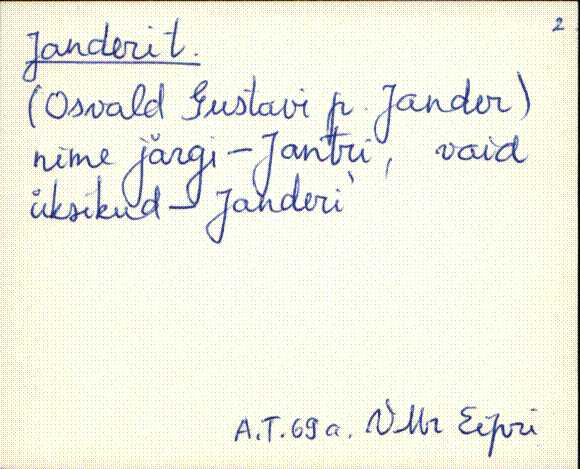 2
Janderit.
(Osvald Gustavi p. Jander)
nime järgi – Jantri, vaid
üksikud – Janderi
A.T. 69 a. VMr